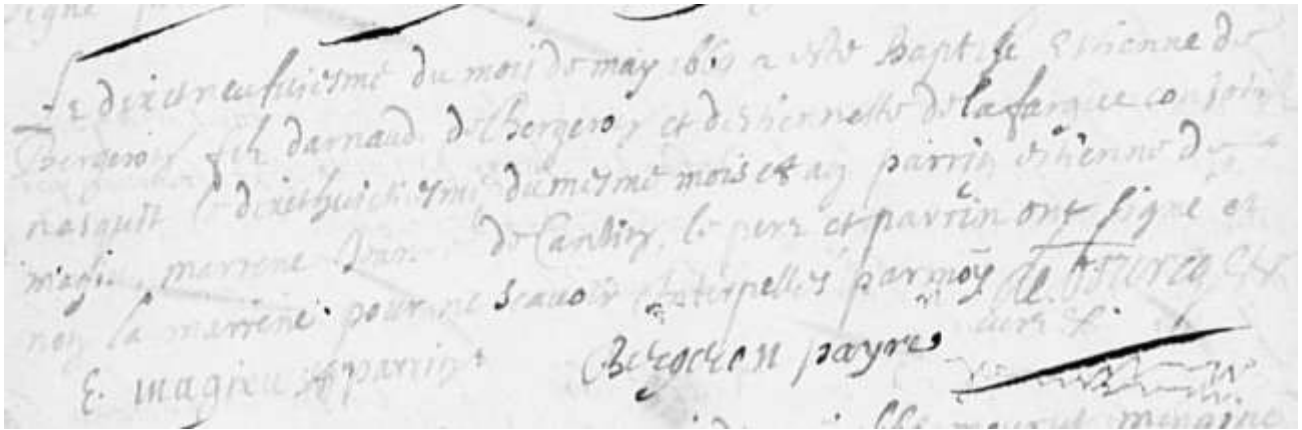 Le dixetneufiesme du mois de may 166 a este Baptise Estienne de
Bergeron fils darnaud de Bergeron et destiennette de lafargue conjoins
nasquit le dixethuictiesme du mesme mois et an parrin estienne de
magieu marrene de Canbien le pere et parrin ont signé et
non la marrene pour ne scavoir interpelles par moy de
E. magieu parrin Bergeron payre